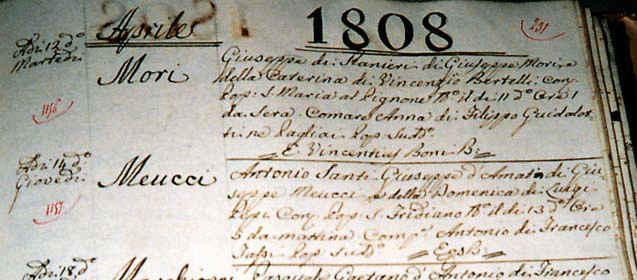 Aprile 1808 231
Adì 12 dº
Martedì
1156
Mori
Giuseppe di Ranieri di Giuseppe Mori, e
della Caterina di Vincenzio Bertelli Con.
Pop: S. Maria al Pignone Nº il dì 11 dº Ore 1
da Sera. Comare Anna di Filippo Guidalot
ti ne Pagliai Pop: Sudº.
E. Vincentius Boni B:
Adì 14 dº
Giovedì
1157
Meucci
Antonio Santi Giuseppe d'Amati di Giu-
seppe Meucci e della Domenica di Luigi
Pepi Con. Pop: S. Frediano Nº il dì 13 dº Ore
5 da mattina Compe. Antonio di Francesco
Tassi Pop: Sudº. Eg.B:
Adì 18 dº
Pasquale Gaetano d'Antonio di Francesco